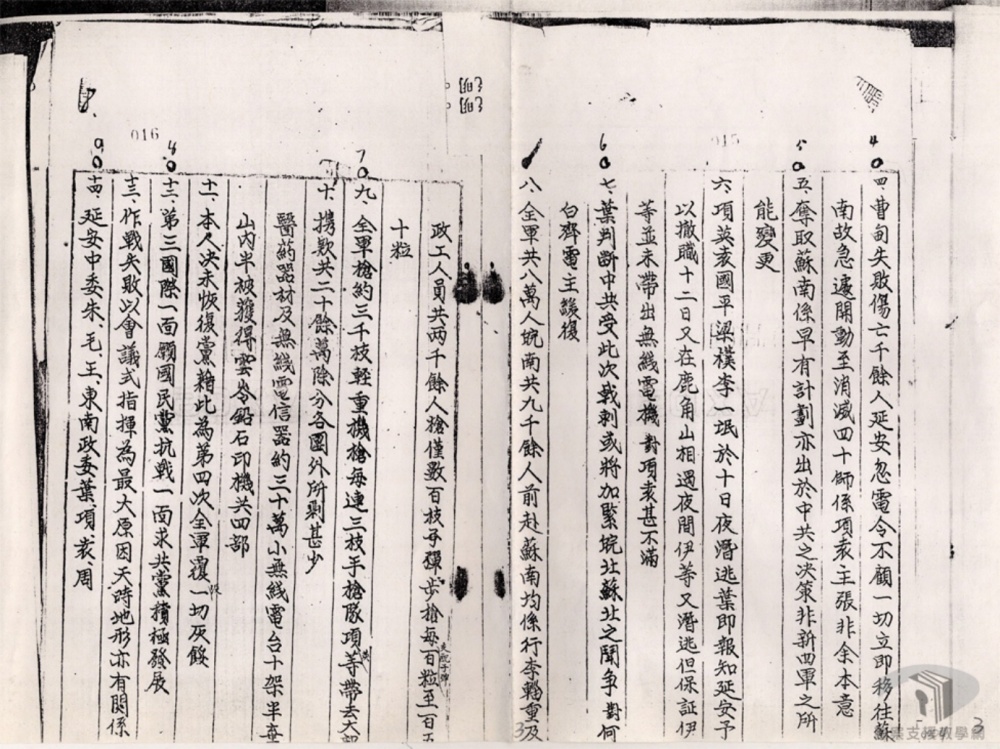 015
四、曹甸失敗傷亡千餘人延安忽電令不顧一切立即移往蘇
南故急遽開動至消滅四十師係項袁主張非余本意
五、奪取蘇南係早有計劃亦出於中共之決策非新四軍之所
能變更
六、項英袁國平梁樸李一氓於十日夜潛逃葉即報知延安予
以撤職十二日又在鹿角山相遇夜間伊等又潛逃但保証伊
等並未帶出無綫電機對項袁甚不滿
七、葉判斷中共受此次戟刺或將加緊皖北蘇北之鬥爭對何
白齊電主緩復
八、全軍共八萬人皖南共九千餘人前赴蘇南均係行李輜重及
016
政工人員共兩千餘人槍僅數百枝子彈步槍每百粒至百五
十粒
九、全軍槍約三千枝輕重機槍每連三枝手槍隊項等帶去大部
十、携款共二十餘萬除分各團外所剩甚少
醫葯器材及無綫電信器約三十萬小無綫電台十架半在
山內半被獲得雲岺鉛石印機共四部
十一、本人決未恢復黨藉此為第四次全軍覆一切灰餒
十二、第三國際一面顧國民黨抗戰一面求共黨積極發展
十三、作戰失敗以會議式指揮為最大原因天時地形亦有関係
十四、延安中委朱、毛、王、東南政委葉項袁、周